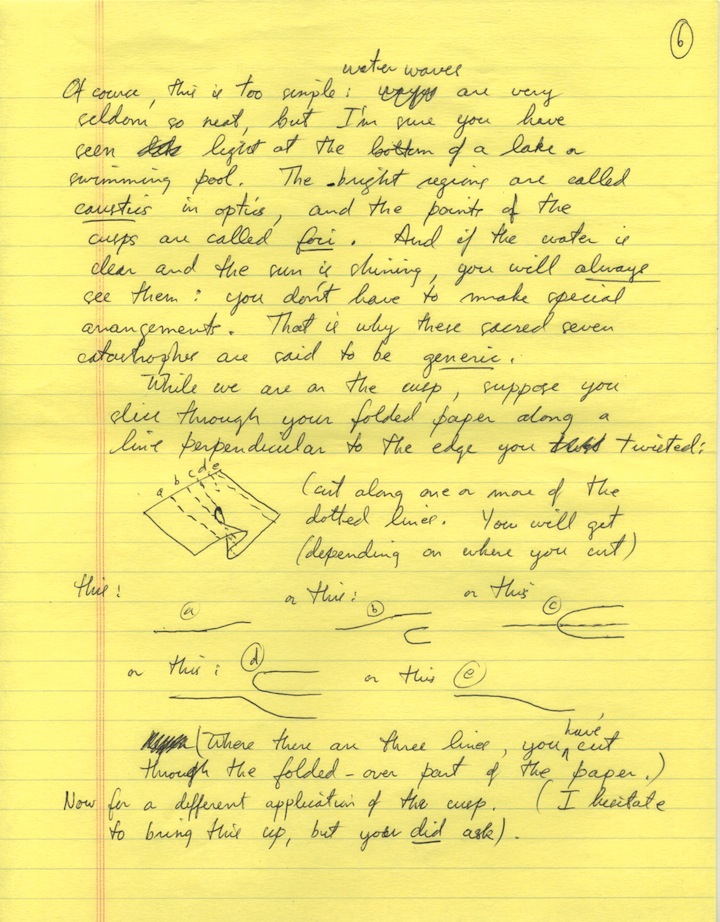 6
water waves
Of course, this is too simple: are very
seldom so neat, but I'm sure you have
seen light at the bottom of a lake or
swimming pool. The bright regions are called
caustics in optics, and the points of the
cusps are called foci. And if the water is
clear and the sun is shining, you will always
see them: you don't have to make special
arrangements. That is why these sacred seven
catastrophes are said to be generic.
While we are on the cusp, suppose you
slice through your folded paper along a
line perpendicular to the edge you twisted:
a b c d e
(cut along one or more of the
dotted lines. You will get
(depending on where you cut)
this: or this: or this
a b c
or this: d or this e
(Where there are three lines, you have cut
through the folded-over part of the paper.)
Now for a different application of the cusp. (I hesitate
to bring this up, but you did ask).